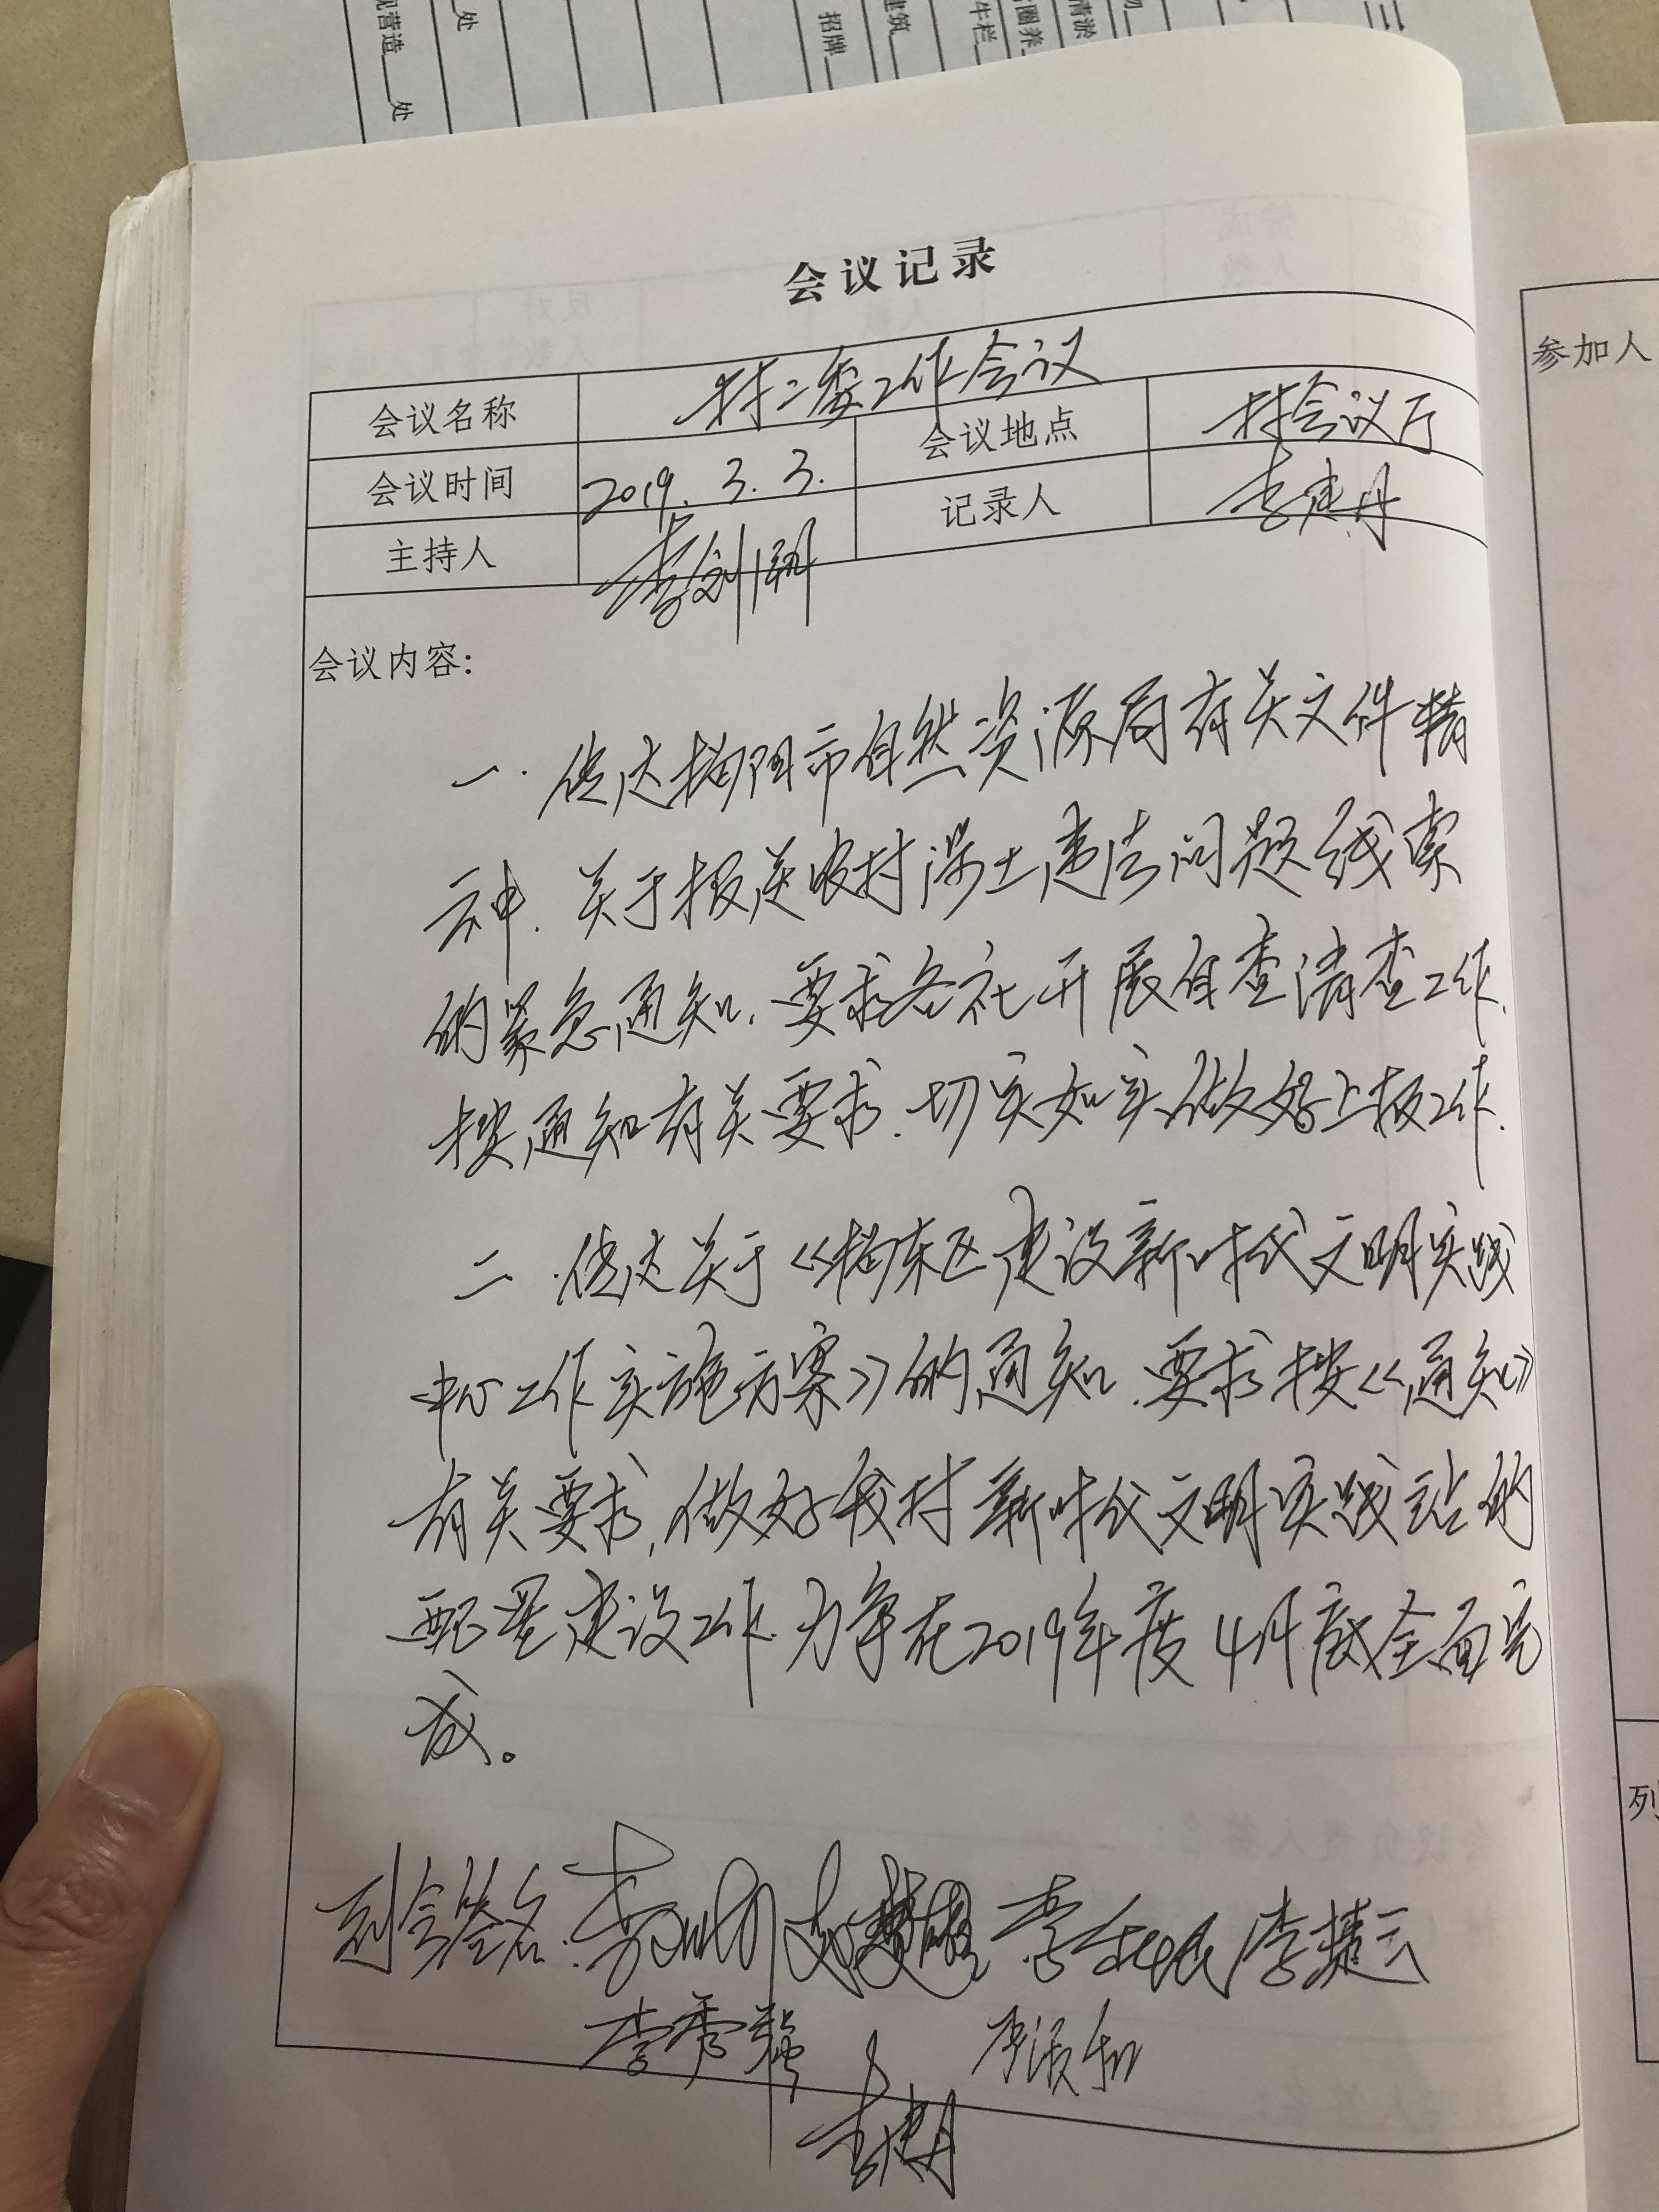 现营造__处
__处
招牌
建筑
牛栏
圈养
清淤
会议记录
会议名称 村二委工作会议
会议时间 2019.3.3. 会议地点 村会议厅
主持人 李剑鹏 记录人 李建丹
会议内容:
一.传达揭阳市自然资源局有关文件精
神.关于报送农村涉土违法问题线索
的紧急通知.要求各社开展自查清查工作.
按通知有关要求.切实如实做好上报工作.
二.传达关于《揭东区建设新时代文明实践
中心工作实施方案》的通知.要求按《通知》
有关要求,做好我村新时代文明实践站的
配置建设工作.力争在2019年度4月底全面完
成。
到会签名: 李捷云
李秀强
李建丹
参加人
列